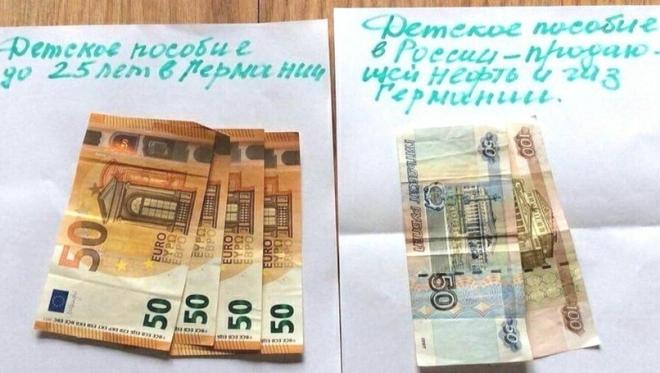 Детское пособие
до 25 лет в Германии
50
EURO
ΕΥΡΩ
ЕВРО
50
50
50
50
Детское пособие
в России – продаю-
щей нефть и газ
Германии.
50
ПЯТЬДЕСЯТ РУБЛЕЙ
50
50
100
100